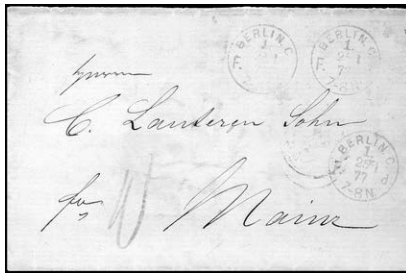 BERLIN, C.
1
BERLIN, C.
1
77
7-8N
Herrn
C. Lauteren Sohn
BERLIN, C.
1
77
7-8N
Mainz